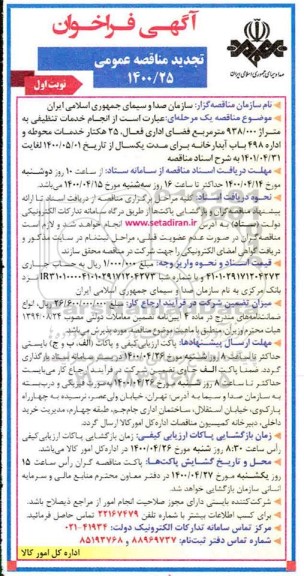 آگهی فراخوان
تجدید مناقصه عمومی
۱۴۰۰/۲۵
نوبت اول
صدا و سیمای جمهوری اسلامی ایران
نام سازمان مناقصه‌گزار: سازمان صدا و سیمای جمهوری اسلامی ایران
موضوع مناقصه یک مرحله‌ای: عبارت است از انجام خدمات تنظیفی به
متراژ ۹۳۸/۰۰۰ مترمربع فضای اداری فعال، ۲۵ هکتار خدمات محوطه و
اداره ۴۹۸ باب آبدارخانه برای مدت یکسال از تاریخ ۱۴۰۰/۰۵/۰۱ لغایت
۱۴۰۱/۰۴/۳۱ به شرح اسناد مناقصه
مهلت دریافت اسناد مناقصه از سامانه ستاد: از ساعت ۱۰ روز دوشنبه
مورخ ۱۴۰۰/۰۴/۱۴ حداکثر تا ساعت ۱۶ روز سه‌شنبه مورخ ۱۴۰۰/۰۴/۱۵ می‌باشد.
نحوه دریافت اسناد: کلیه مراحل برگزاری مناقصه از دریافت اسناد تا ارائه
پیشنهاد مناقصه‌گران و بازگشایی پاکت‌ها از طریق درگاه سامانه تدارکات الکترونیکی
دولت (ستاد) به آدرس www.setadiran.ir انجام خواهد شد و لازم است
مناقصه‌گران در صورت عدم عضویت قبلی، مراحل ثبت‌نام در سایت مذکور و
دریافت گواهی امضای الکترونیکی را جهت شرکت در مناقصه محقق سازند.
قیمت اسناد و نحوه واریز وجه: مبلغ ۱/۰۰۰/۰۰۰ ریال به حساب جاری
بانک مرکزی به نام سازمان صدا و سیمای جمهوری اسلامی ایران
میزان تضمین شرکت در فرآیند ارجاع کار: مبلغ ۲۶/۶۰۰/۰۰۰/۰۰۰ ریال، انواع
ضمانتنامه‌های مندرج در ماده ۴ آیین‌نامه تضمین معاملات دولتی مصوب ۱۳۹۴/۰۸/۲۴
هیات محترم وزیران، منطبق با ماهیت موضوع مناقصه مورد پذیرش می‌باشد.
مهلت ارسال پیشنهادها: پاکت ارزیابی کیفی و پاکات (الف، ب و ج) بایستی
حداکثر تا ساعت ۸ روز شنبه مورخ ۱۴۰۰/۰۴/۲۶ در سامانه ستاد بارگذاری
گردد. ضمنا پاکت الف تضمین شرکت در فرآیند ارجاع کار می‌بایست
حداکثر تا ساعت ۸ روز شنبه مورخ ۱۴۰۰/۰۴/۲۶
به سازمان صدا و سیما به آدرس: تهران، خیابان ولی‌عصر، نرسیده به چهارراه
پارک‌وی، خیابان استقلال، ساختمان اداری جام‌جم، طبقه چهارم، مدیریت خرید
داخلی، دبیرخانه کمیسیون مناقصات اداره کل امور کالا ارسال گردد.
زمان بازگشایی پاکات ارزیابی کیفی: زمان بازگشایی پاکات ارزیابی کیفی
رأس ساعت ۸:۳۰ روز شنبه مورخ ۱۴۰۰/۰۴/۲۶ در اداره کل امور کالا می‌باشد.
محل و تاریخ گشایش پاکت‌ها: پاکت مناقصه گران رأس ساعت ۱۵
روز یکشنبه مورخ ۱۴۰۰/۰۴/۲۷ در دفتر معاون محترم منابع مالی و سرمایه
انسانی سازمان بازگشایی خواهد شد.
شرکت کننده بایستی دارای مجوز صلاحیت انجام امور از مراجع ذیصلاح باشد.
برای کسب اطلاعات بیشتر با شماره تلفن ۲۲۱۶۷۴۷۹ تماس حاصل فرمائید.
مرکز تماس سامانه تدارکات الکترونیک دولت: ۰۲۱-۴۱۹۳۴
شماره تماس دفتر ثبت‌نام: ۸۸۹۶۹۷۳۷ و ۸۵۱۹۳۷۶۸
اداره کل امور کالا